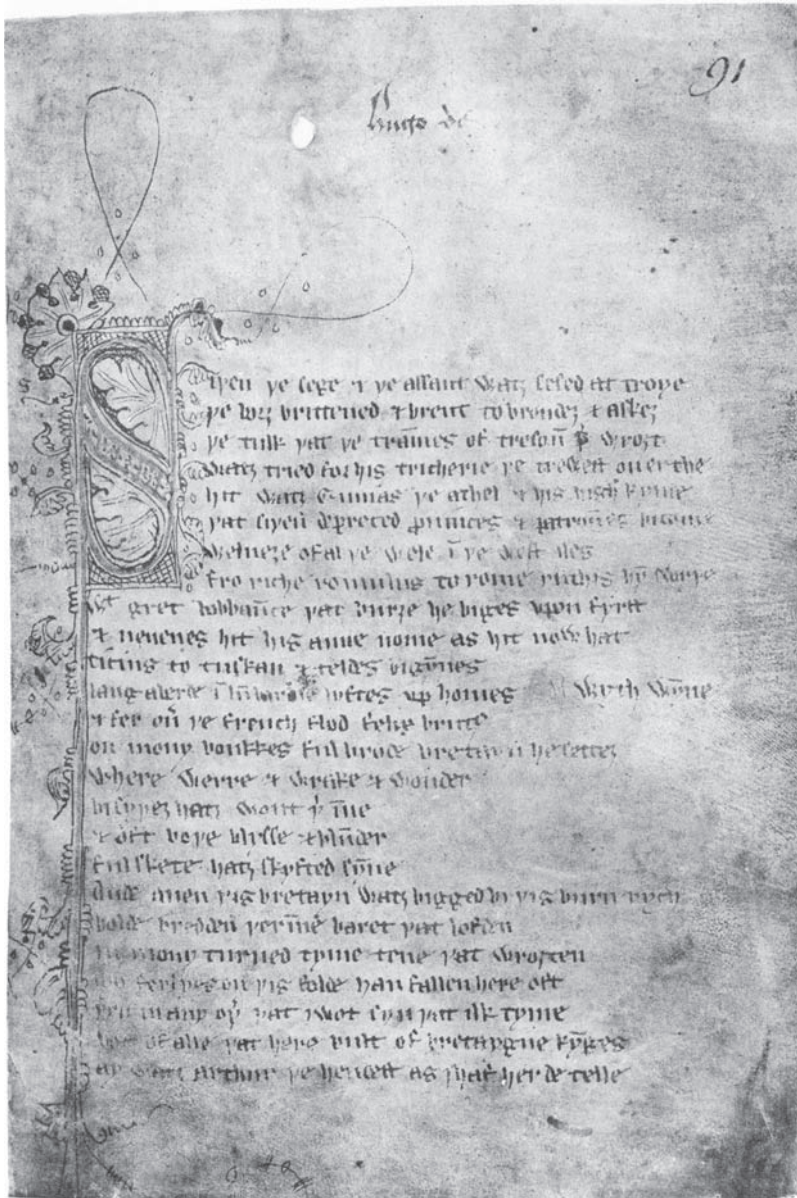 91
Hugo de
Siþen þe sege & þe assaut watz sesed at troye
þe borȝ brittened & brent to brondeȝ & askez
þe tulk þat þe trāmes of tresoū þ̉ wroȝt
watz tried for his tricherie þe trewest on erthe
hit watz Ennias þe athel & his highe kynde
þat siþen depreced ꝓuinces & patroūes bicome
welneȝe of al þe wele ī þe west iles
fro riche romulus to rome ricchis hȳ swyþe
wt gret bobbaūce þat burȝe he biges vpon fyrst
& neuenes hit his aune nome as hit now hat
ticius to tuskan & teldes bigȳnes
langaberde ī lūbardie lyftes vp homes wyth wȳne
& fer oủ þe french flod felix brutus
on mony bonkkes ful brode bretayn he settez
where werre & wrake & wonder
bi syþez hatz wont þ̉ īne
& oft boþe blysse & blūder
ful skete hatz skyfted sȳne
Ande quen þis bretayn watz bigged bi þis burn rych
bolde bredden þ̉īne baret þat lofden
in mony turned tyme tene þat wroȝten
mo ferlyes on þis folde han fallen here oft
þen in any oþ̉ þat I wot syn þat ilk tyme
bot of alle þat here bult of bretaygne kȳges
ay watz arthur þe hendest as I haf herde telle